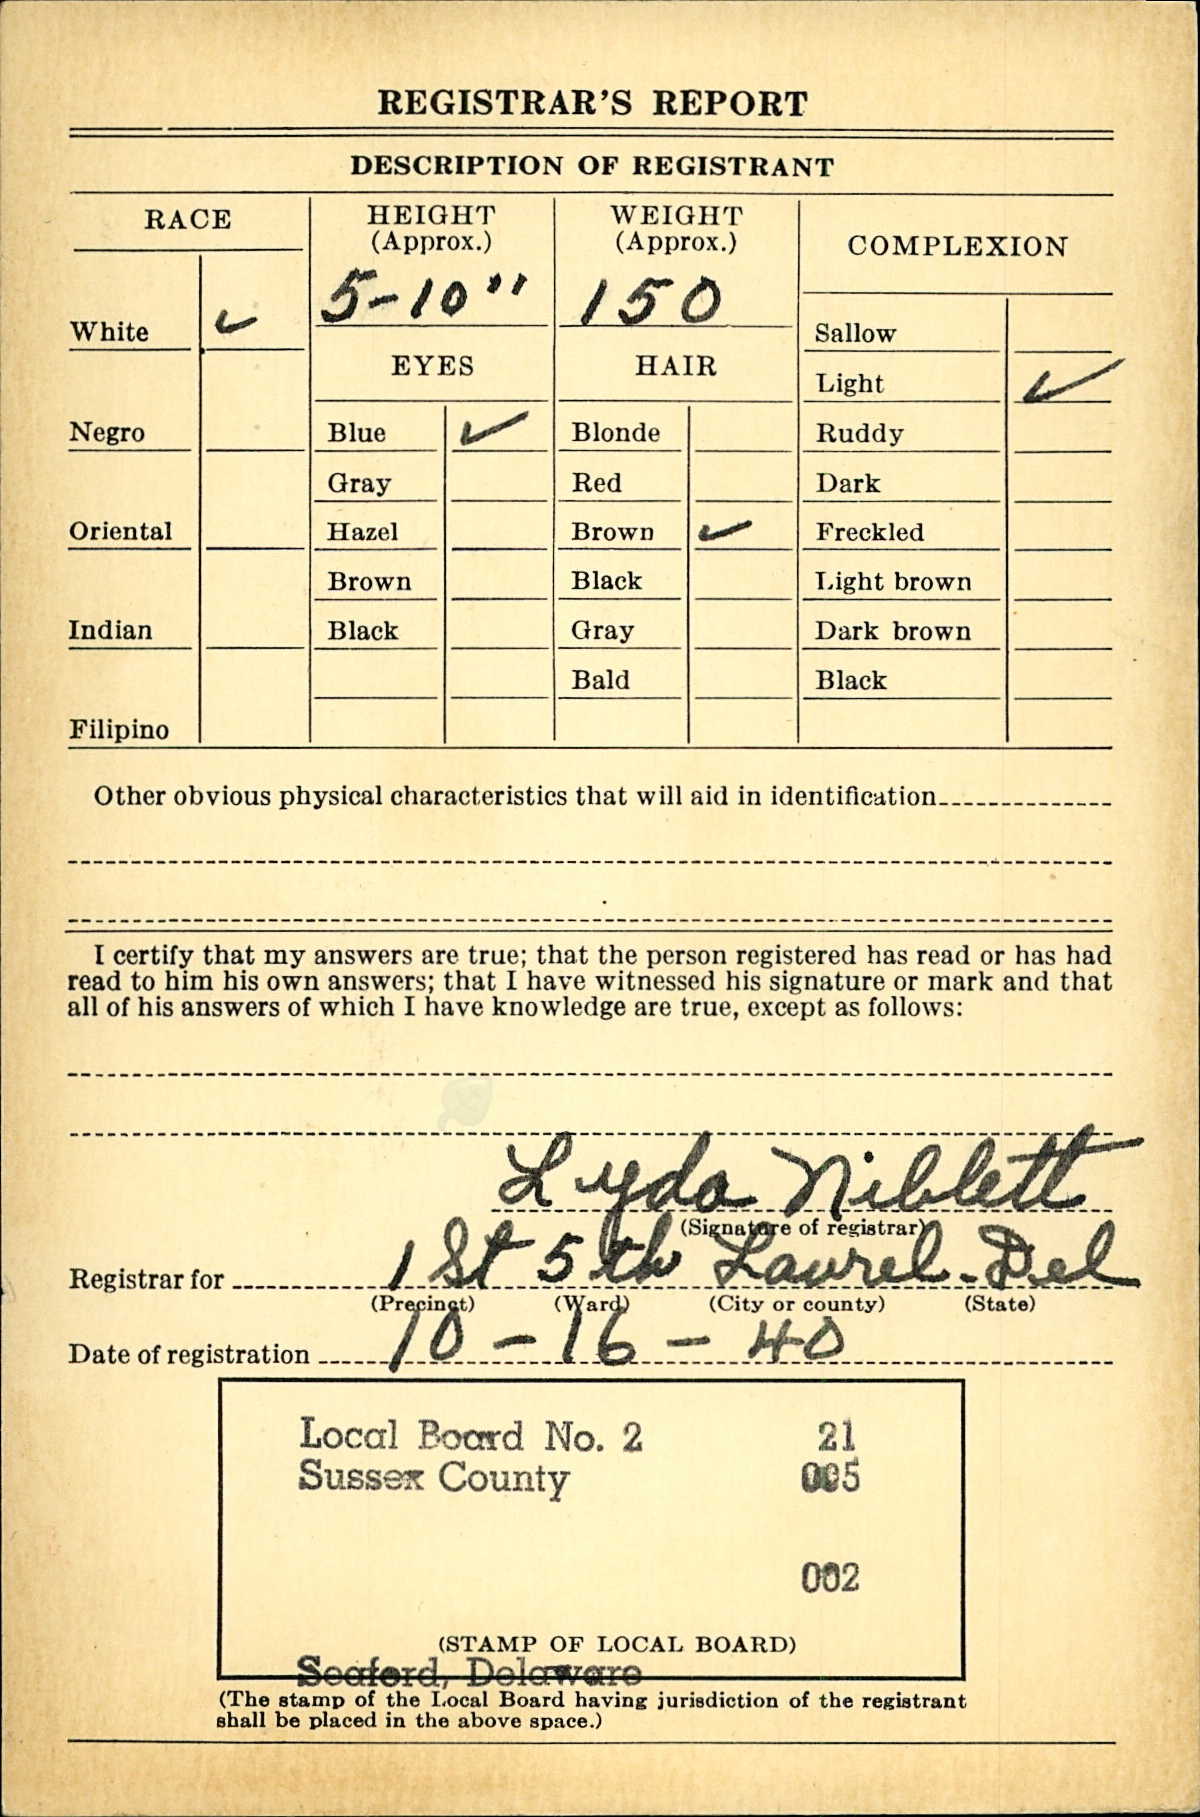 REGISTRAR'S REPORT
DESCRIPTION OF REGISTRANT
RACE
HEIGHT
(Approx.)
WEIGHT
(Approx.)
COMPLEXION
5-10"
150
White ✓
Sallow
EYES
HAIR
Light ✓
Negro
Blue ✓
Blonde
Ruddy
Gray
Red
Dark
Oriental
Hazel
Brown ✓
Freckled
Brown
Black
Light brown
Indian
Black
Gray
Dark brown
Bald
Black
Filipino
Other obvious physical characteristics that will aid in identification
I certify that my answers are true; that the person registered has read or has had
read to him his own answers; that I have witnessed his signature or mark and that
all of his answers of which I have knowledge are true, except as follows:
Lyda Niblett
(Signature of registrar)
Registrar for 1st 5th Laurel - Del
(Precinct) (Ward) (City or county) (State)
Date of registration 10-16-40
Local Board No. 2 21
Sussex County 005
002
(STAMP OF LOCAL BOARD)
Seaford, Delaware
(The stamp of the Local Board having jurisdiction of the registrant
shall be placed in the above space.)